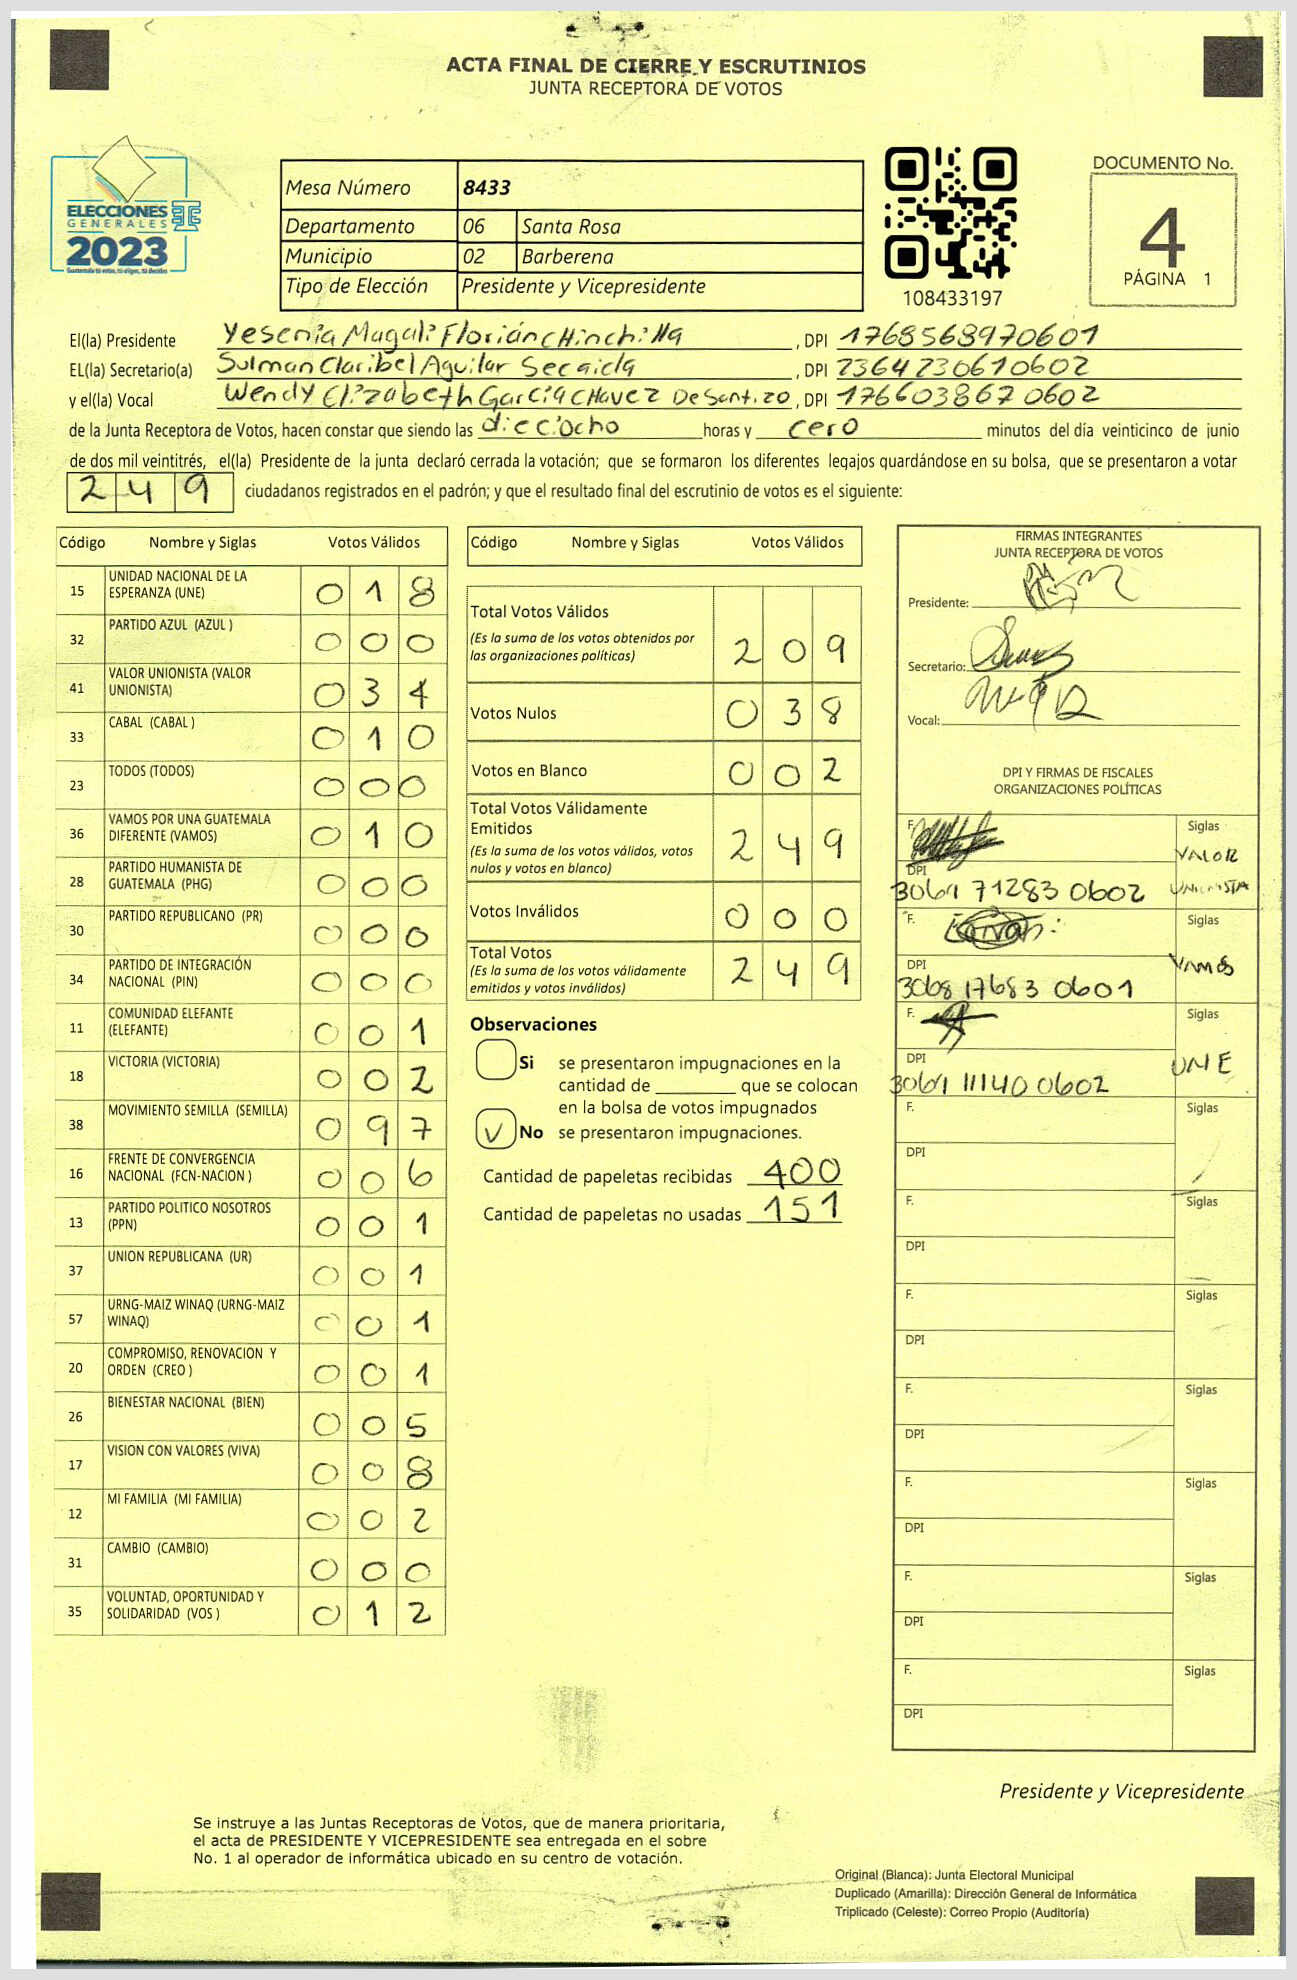 ACTA FINAL DE CIERRE Y ESCRUTINIOS
JUNTA RECEPTORA DE VOTOS
ELECCIONES
GENERALES
2023
Guatemala tú votas, tú eliges, tú decides
Mesa Número 8433
Departamento 06 Santa Rosa
Municipio 02 Barberena
Tipo de Elección Presidente y Vicepresidente
108433197
DOCUMENTO No.
4
PÁGINA 1
El(la) Presidente Yesenia Magali Florián Chinchilla, DPI 1768568970601
EL(la) Secretario(a) Sulman Claribel Aguilar Secaida, DPI 2364230610602
y el(la) Vocal Wendy Elizabeth García Chavez De Santizo, DPI 1766038670602
de la Junta Receptora de Votos, hacen constar que siendo las dieciocho horas y cero minutos del día veinticinco de junio
de dos mil veintitrés, el(la) Presidente de la junta declaró cerrada la votación; que se formaron los diferentes legajos guardándose en su bolsa, que se presentaron a votar
249 ciudadanos registrados en el padrón; y que el resultado final del escrutinio de votos es el siguiente:
Código Nombre y Siglas Votos Válidos
15 UNIDAD NACIONAL DE LA ESPERANZA (UNE) 018
32 PARTIDO AZUL (AZUL ) 000
41 VALOR UNIONISTA (VALOR UNIONISTA) 034
33 CABAL (CABAL ) 010
23 TODOS (TODOS) 000
36 VAMOS POR UNA GUATEMALA DIFERENTE (VAMOS) 010
28 PARTIDO HUMANISTA DE GUATEMALA (PHG) 000
30 PARTIDO REPUBLICANO (PR) 000
34 PARTIDO DE INTEGRACIÓN NACIONAL (PIN) 000
11 COMUNIDAD ELEFANTE (ELEFANTE) 001
18 VICTORIA (VICTORIA) 002
38 MOVIMIENTO SEMILLA (SEMILLA) 097
16 FRENTE DE CONVERGENCIA NACIONAL (FCN-NACION ) 006
13 PARTIDO POLITICO NOSOTROS (PPN) 001
37 UNION REPUBLICANA (UR) 001
57 URNG-MAIZ WINAQ (URNG-MAIZ WINAQ) 001
20 COMPROMISO, RENOVACION Y ORDEN (CREO ) 001
26 BIENESTAR NACIONAL (BIEN) 005
17 VISION CON VALORES (VIVA) 008
12 MI FAMILIA (MI FAMILIA) 002
31 CAMBIO (CAMBIO) 000
35 VOLUNTAD, OPORTUNIDAD Y SOLIDARIDAD (VOS ) 012
Código Nombre y Siglas Votos Válidos
Total Votos Válidos
(Es la suma de los votos obtenidos por
las organizaciones políticas) 209
Votos Nulos 038
Votos en Blanco 002
Total Votos Válidamente
Emitidos
(Es la suma de los votos válidos, votos
nulos y votos en blanco) 249
Votos Inválidos 000
Total Votos
(Es la suma de los votos válidamente
emitidos y votos inválidos) 249
Observaciones
Si se presentaron impugnaciones en la
cantidad de ________ que se colocan
en la bolsa de votos impugnados
No se presentaron impugnaciones.
Cantidad de papeletas recibidas 400
Cantidad de papeletas no usadas 151
FIRMAS INTEGRANTES
JUNTA RECEPTORA DE VOTOS
Presidente:
Secretario:
Vocal:
DPI Y FIRMAS DE FISCALES
ORGANIZACIONES POLÍTICAS
F. Siglas
VALOR
UNIONISTA
DPI
3061 71283 0602
F. Siglas
VAMOS
DPI
3068 17683 0601
F. Siglas
UNE
DPI
3061 11140 0602
F. Siglas
DPI
F. Siglas
DPI
F. Siglas
DPI
F. Siglas
DPI
F. Siglas
DPI
F. Siglas
DPI
F. Siglas
DPI
Presidente y Vicepresidente
Se instruye a las Juntas Receptoras de Votos, que de manera prioritaria,
el acta de PRESIDENTE Y VICEPRESIDENTE sea entregada en el sobre
No. 1 al operador de informática ubicado en su centro de votación.
Original (Blanca): Junta Electoral Municipal
Duplicado (Amarilla): Dirección General de Informática
Triplicado (Celeste): Correo Propio (Auditoría)